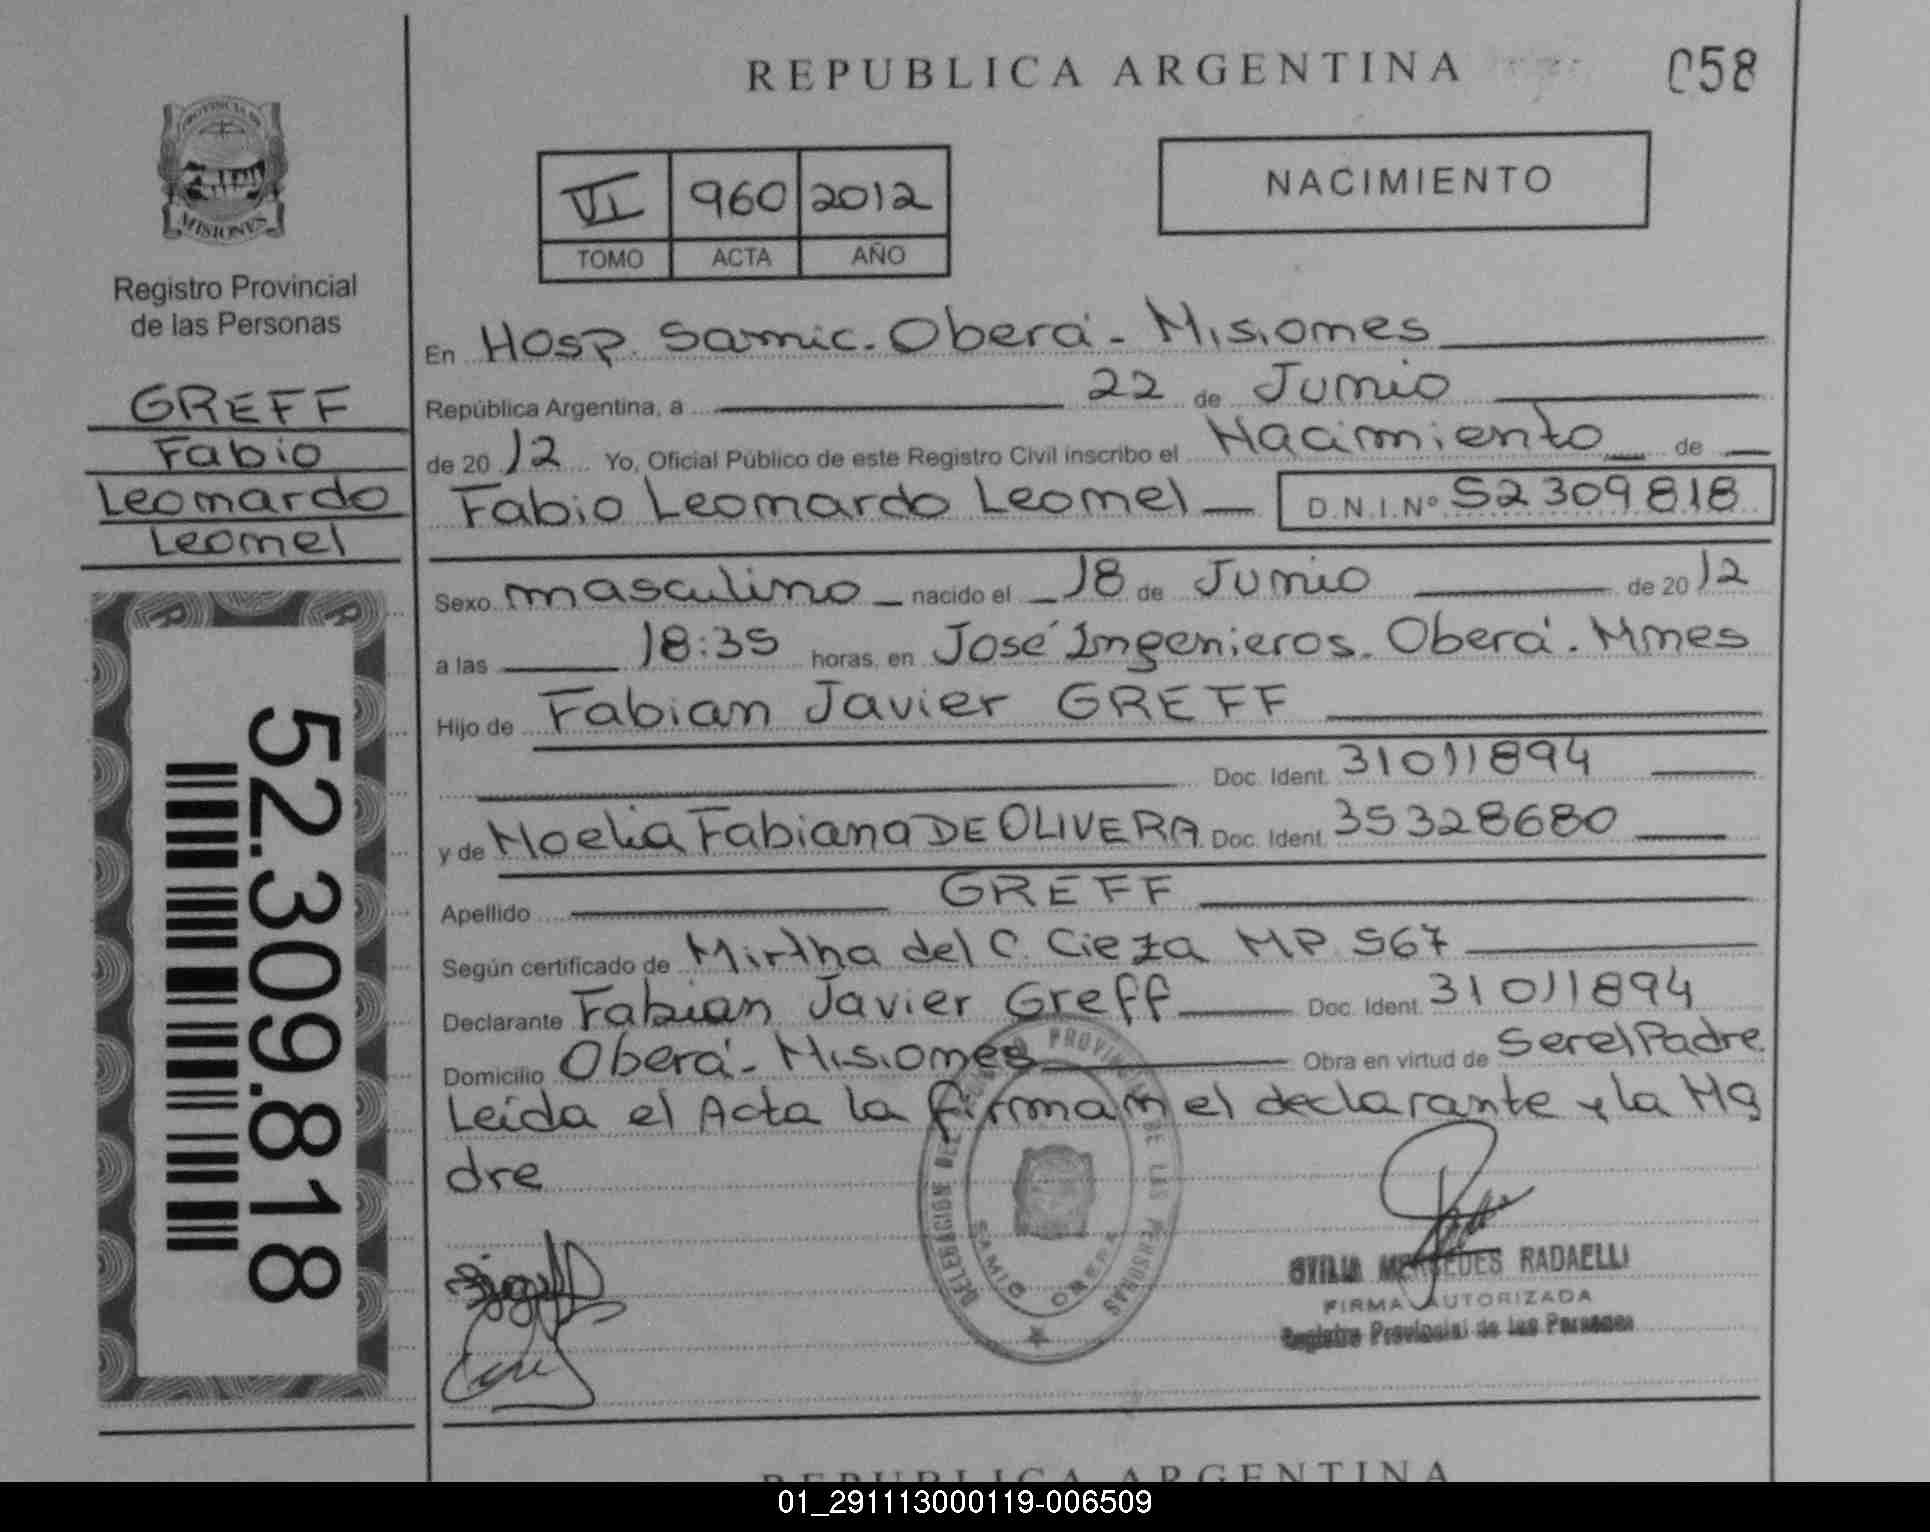 REPUBLICA ARGENTINA
058
PROVINCIA DE
MISIONES
Registro Provincial
de las Personas
GREFF
Fabio
Leonardo
Leonel
52.309.818
VI 960 2012
TOMO ACTA AÑO
NACIMIENTO
En Hosp. Samic. Oberá - Misiones
República Argentina, a 22 de Junio
de 2012 Yo, Oficial Público de este Registro Civil inscribo el Nacimiento de
Fabio Leonardo Leonel D.N.I.Nº 52309818
Sexo masculino nacido el 18 de Junio de 2012
a las 18:35 horas, en José Ingenieros. Oberá. Mnes
Hijo de Fabian Javier GREFF
Doc. Ident. 31011894
y de Noelia Fabiana DE OLIVERA Doc. Ident. 35328680
Apellido GREFF
Según certificado de Mirtha del C. Cieza MP 567
Declarante Fabian Javier Greff Doc. Ident. 31011894
Domicilio Oberá - Misiones Obra en virtud de Ser el Padre
Leída el Acta la firman el declarante y la Ma
dre
DELEGACION DEL REGISTRO PROVINCIAL DE LAS PERSONAS
SAMIC OBERA
MERCEDES RADAELLI
FIRMA AUTORIZADA
Registro Provincial de las Personas
REPUBLICA ARGENTINA
01_291113000119-006509